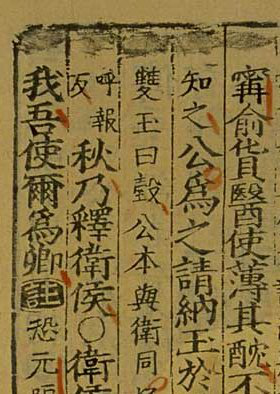 寗俞貨醫使薄其酖不
知之公爲之請納玉於
雙玉曰瑴公本與衛同
呼報
反
秋乃釋衛侯○衛
我吾使爾爲卿註恐元